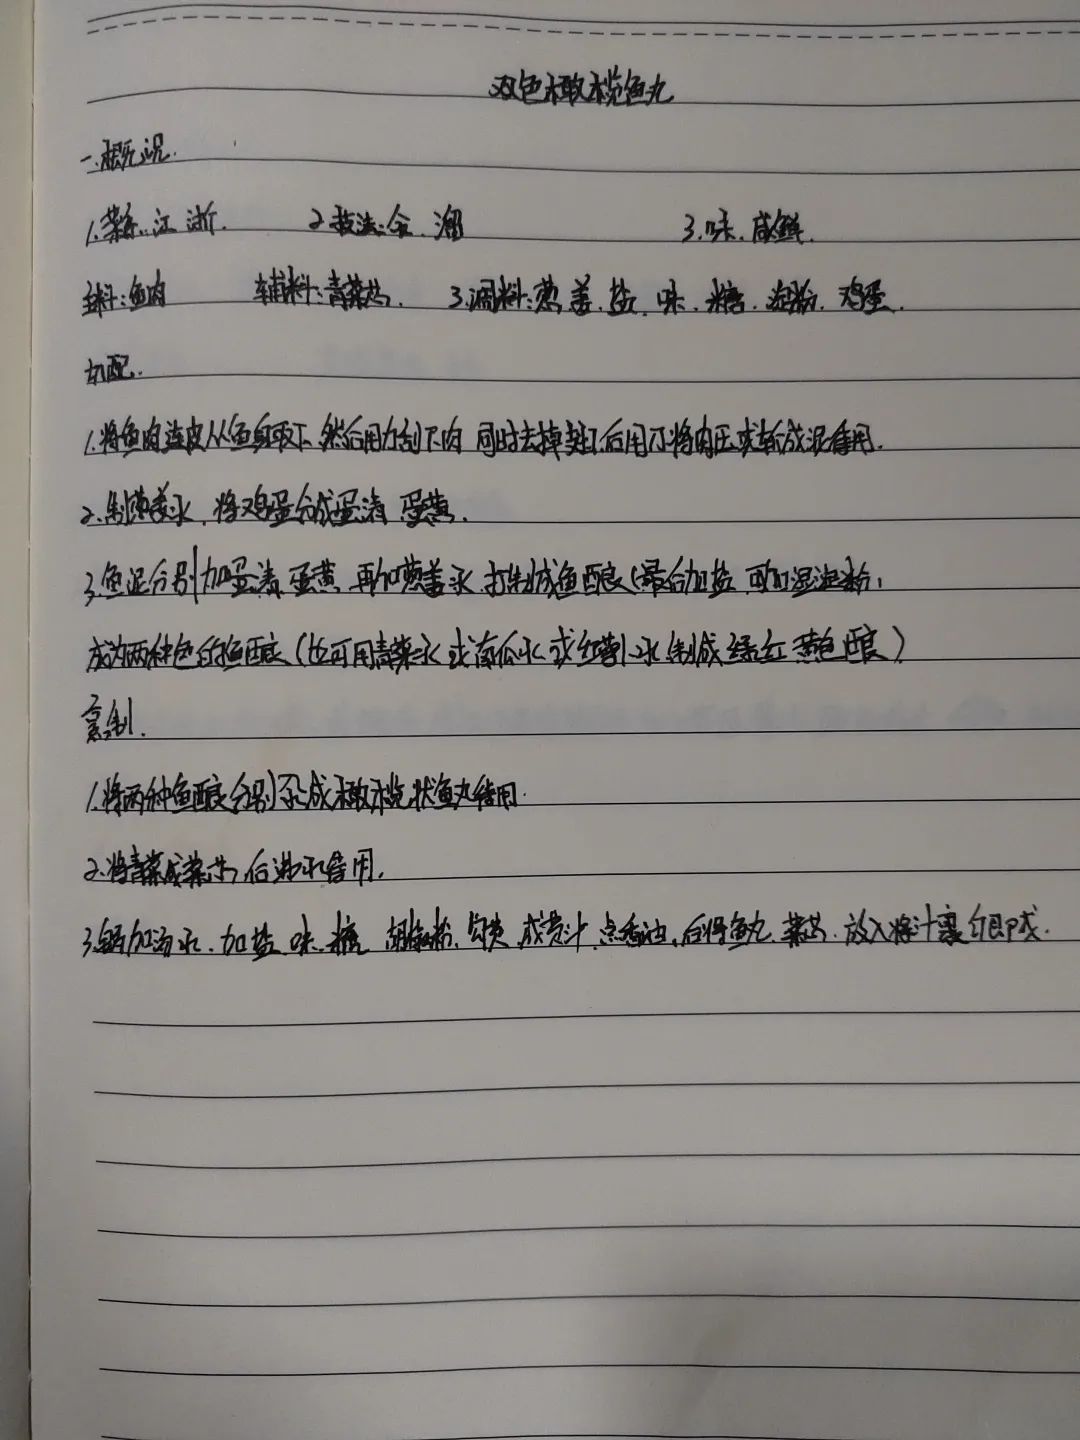 双色橄榄鱼丸
一.概况.
1.菜系:江浙. 2.技法:氽.溜 3.味.咸鲜.
主料:鱼肉 辅料:青菜芯. 3.调料:葱姜.盐.味.糖.淀粉.鸡蛋.
切配.
1.将鱼肉连皮从鱼身取下.然后用刀刮下肉 同时去掉 后用刀将肉压或斩成泥备用.
2.制葱姜水.将鸡蛋分成蛋清 蛋黄.
3.鱼泥分别加蛋清 蛋黄 再加葱姜水.打制成鱼酿(最后加盐 可加湿淀粉,
成为两种色的鱼酿(也可用青菜水或南瓜水或红萝卜水制成绿红黄色酿)
烹制.
1.将两种鱼酿分别 成橄榄状鱼丸备用.
2.将青菜成菜芯,后 水备用.
3.锅加汤水.加盐.味.糖 胡椒粉.勾芡.成 汁.点香油.后将鱼丸.菜芯.放入将汁裹匀即成.